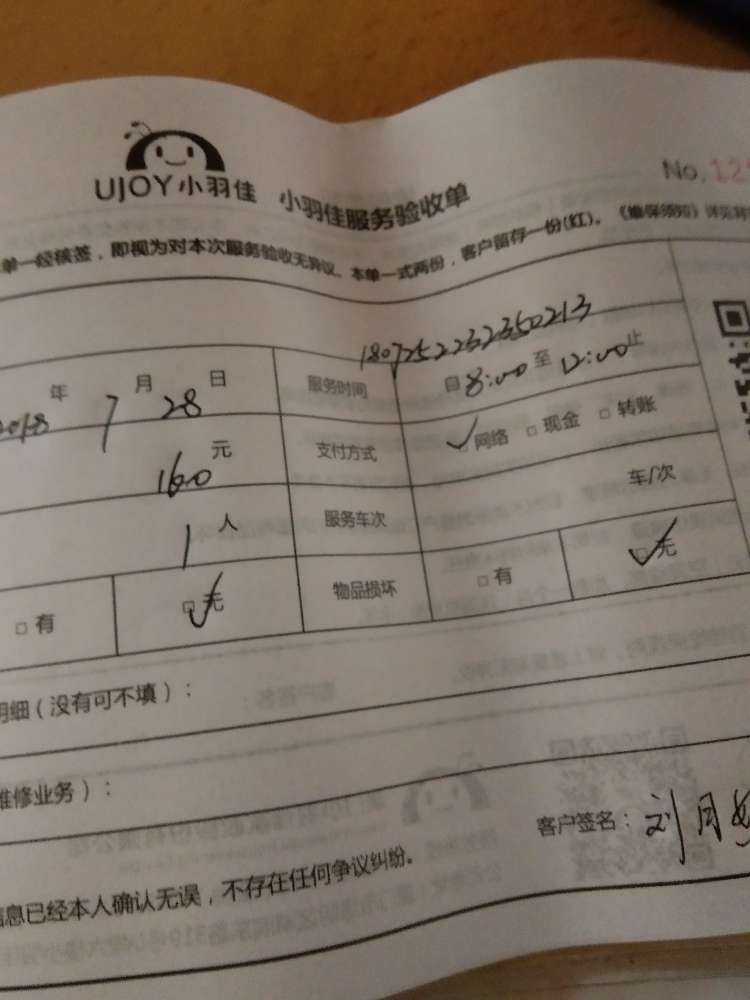 UJOY小羽佳 小羽佳服务验收单 No.12
单一经核签，即视为对本次服务验收无异议。本单一式两份，客户留存一份(红)。《维保须知》详见背
1807252232350213
2018年 7月 28日 服务时间 自8:00至12:00止
160元 支付方式 ✓□网络 □现金 □转账
1人 服务车次 车/次
□有 □✓无 物品损坏 □有 □✓无
明细(没有可不填)：
维修业务)：
客户签名：刘月
信息已经本人确认无误，不存在任何争议纠纷。